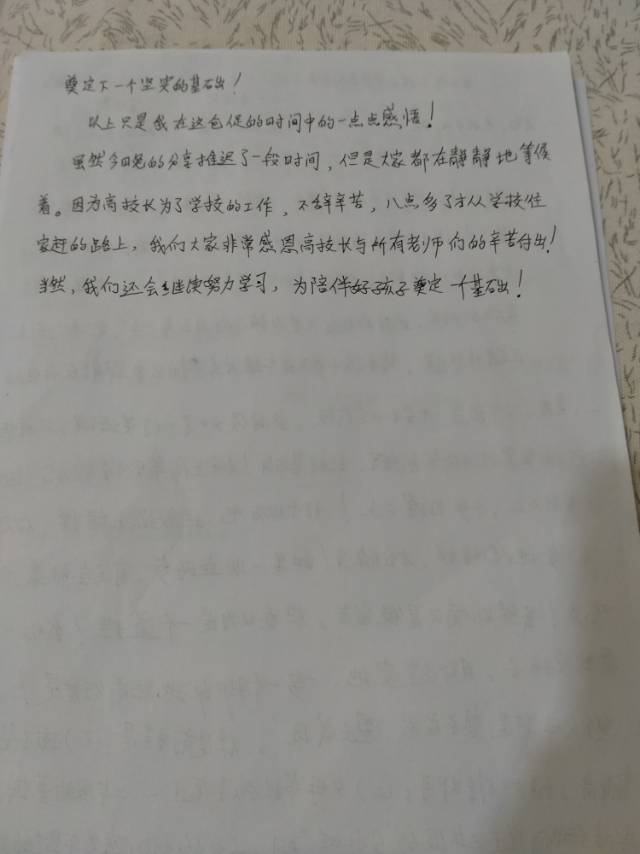 奠定下一个坚实的基础！
以上只是我在这仓促的时间中的一点点感悟！
虽然今日晚的分享推迟了一段时间，但是大家都在静静地等候
着。因为高校长为了学校的工作，不辞辛苦，八点多了才从学校往
家赶的路上，我们大家非常感恩高校长与所有老师们的辛苦付出！
当然，我们还会继续努力学习，为陪伴好孩子奠定一个基础！